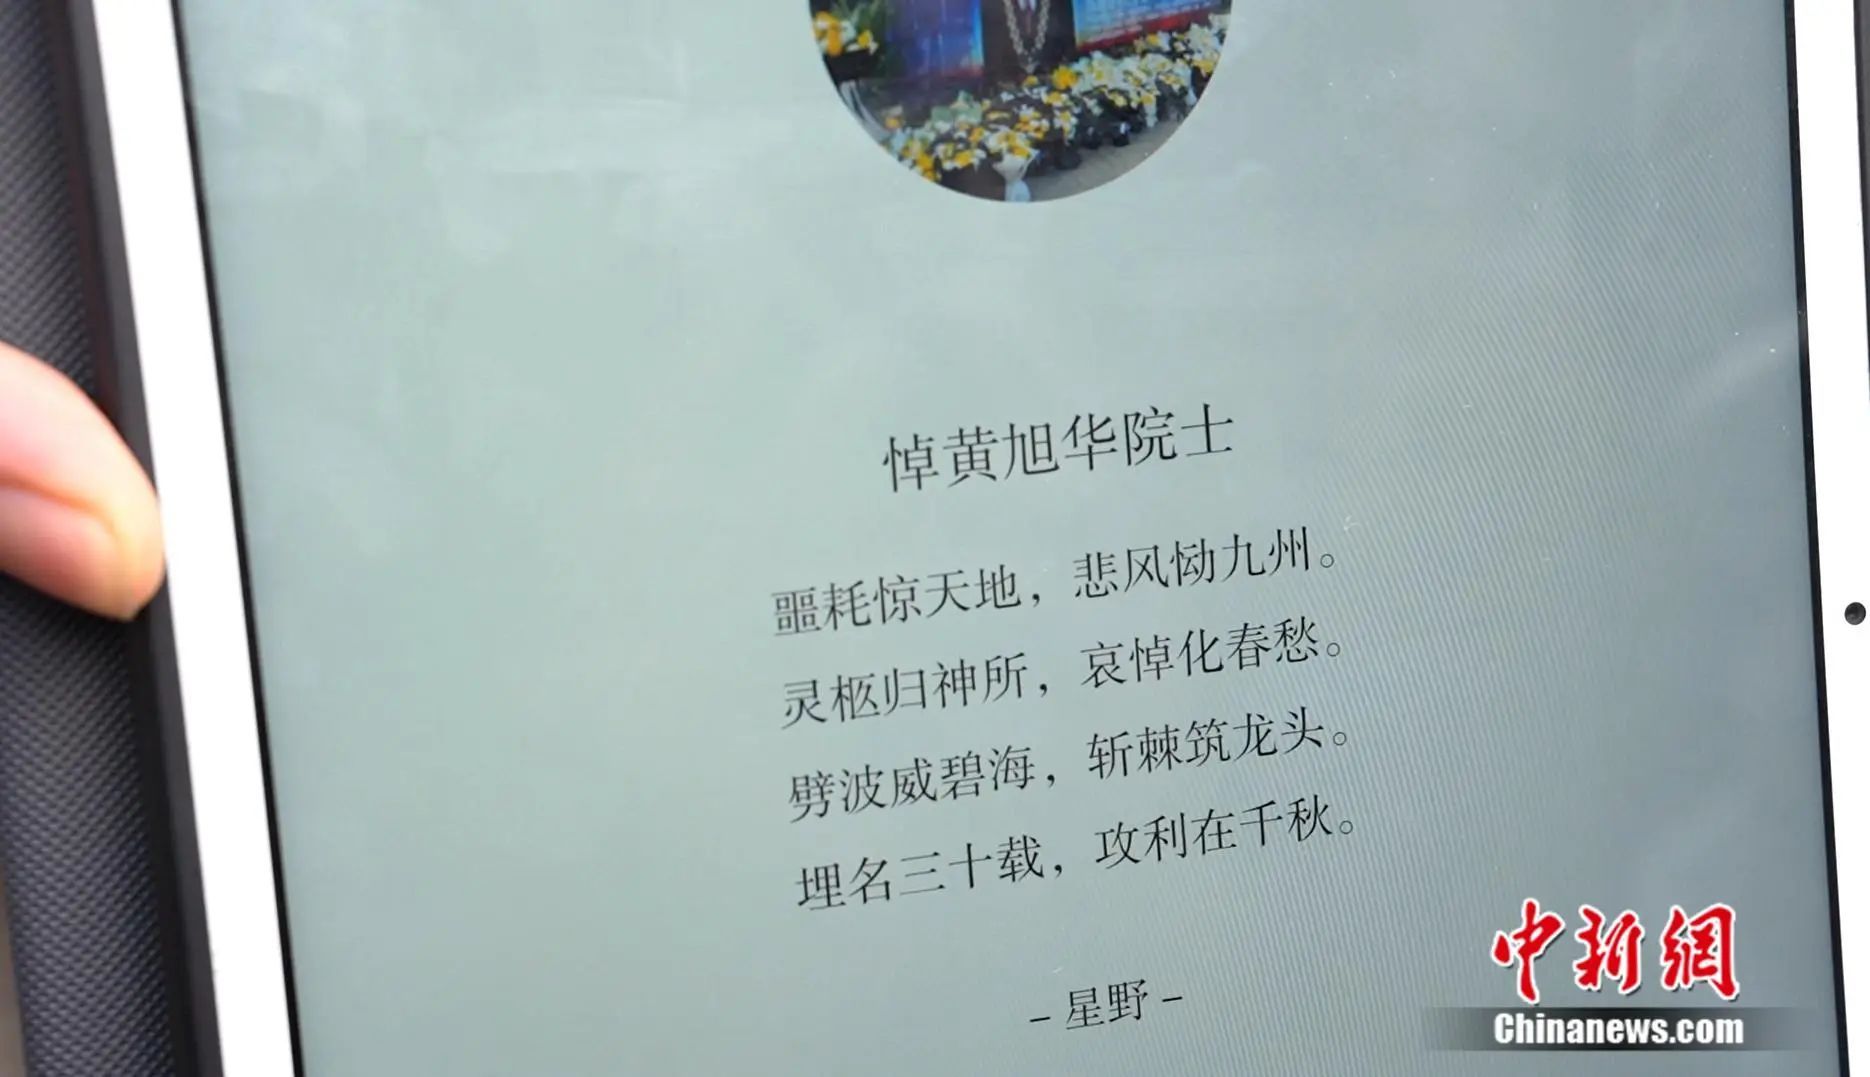 悼黄旭华院士
噩耗惊天地，悲风恸九州。
灵柩归神所，哀悼化春愁。
劈波威碧海，斩棘筑龙头。
埋名三十载，攻利在千秋。
– 星野 –
中新網
Chinanews.com